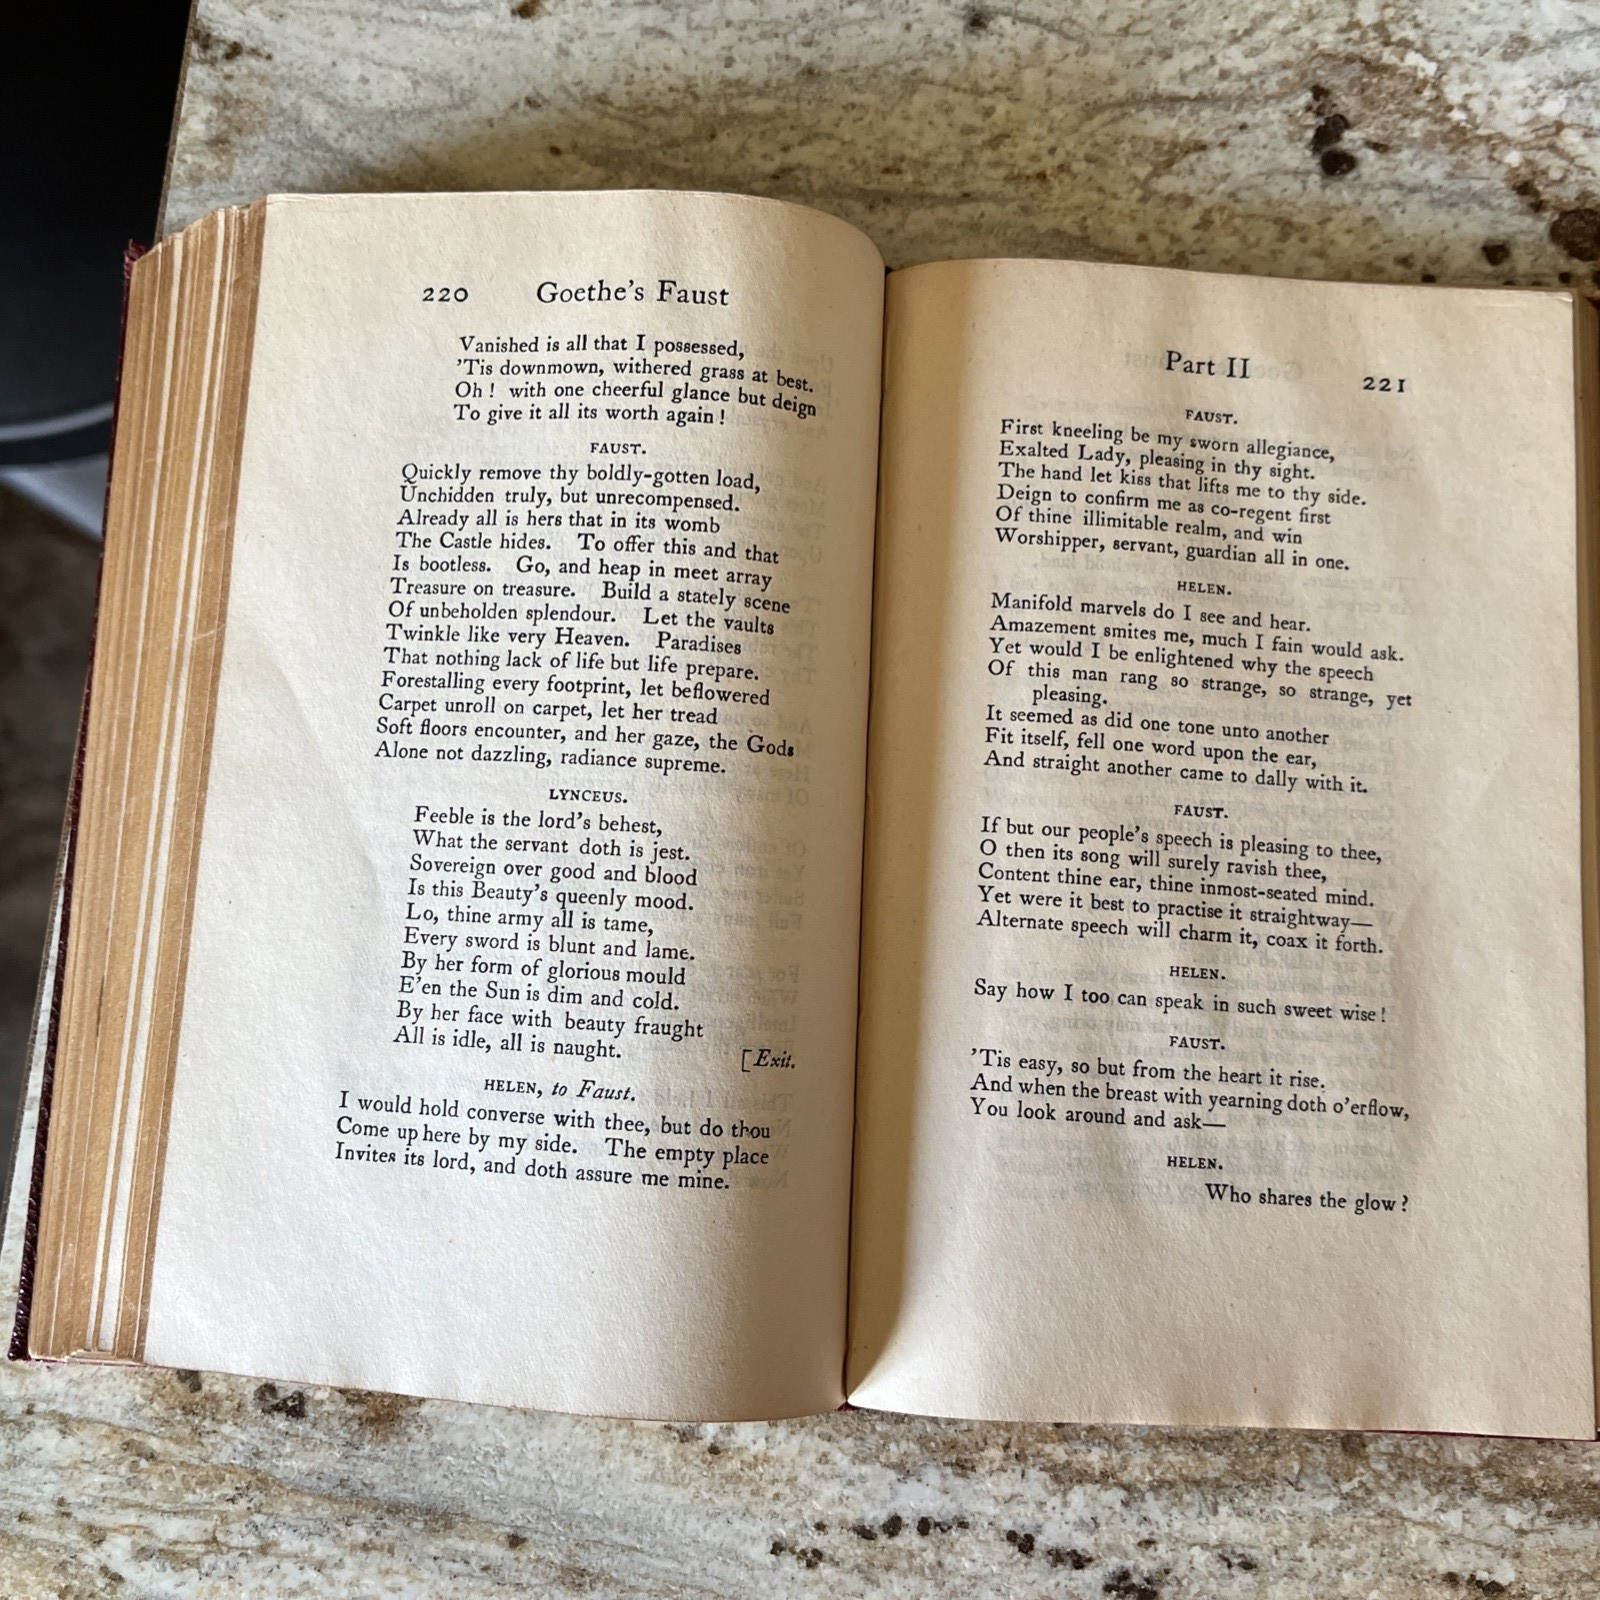 220 Goethe's Faust
Vanished is all that I possessed,
'Tis downmown, withered grass at best.
Oh! with one cheerful glance but deign
To give it all its worth again!
FAUST.
Quickly remove thy boldly-gotten load,
Unchidden truly, but unrecompensed.
Already all is hers that in its womb
The Castle hides. To offer this and that
Is bootless. Go, and heap in meet array
Treasure on treasure. Build a stately scene
Of unbeholden splendour. Let the vaults
Twinkle like very Heaven. Paradises
That nothing lack of life but life prepare.
Forestalling every footprint, let beflowered
Carpet unroll on carpet, let her tread
Soft floors encounter, and her gaze, the Gods
Alone not dazzling, radiance supreme.
LYNCEUS.
Feeble is the lord's behest,
What the servant doth is jest.
Sovereign over good and blood
Is this Beauty's queenly mood.
Lo, thine army all is tame,
Every sword is blunt and lame.
By her form of glorious mould
E'en the Sun is dim and cold.
By her face with beauty fraught
All is idle, all is naught.
[Exit.
HELEN, to Faust.
I would hold converse with thee, but do thou
Come up here by my side. The empty place
Invites its lord, and doth assure me mine.
Part II 221
FAUST.
First kneeling be my sworn allegiance,
Exalted Lady, pleasing in thy sight.
The hand let kiss that lifts me to thy side.
Deign to confirm me as co-regent first
Of thine illimitable realm, and win
Worshipper, servant, guardian all in one.
HELEN.
Manifold marvels do I see and hear.
Amazement smites me, much I fain would ask.
Yet would I be enlightened why the speech
Of this man rang so strange, so strange, yet
pleasing.
It seemed as did one tone unto another
Fit itself, fell one word upon the ear,
And straight another came to dally with it.
FAUST.
If but our people's speech is pleasing to thee,
O then its song will surely ravish thee,
Content thine ear, thine inmost-seated mind.
Yet were it best to practise it straightway—
Alternate speech will charm it, coax it forth.
HELEN.
Say how I too can speak in such sweet wise!
FAUST.
'Tis easy, so but from the heart it rise.
And when the breast with yearning doth o'erflow,
You look around and ask—
HELEN.
Who shares the glow?